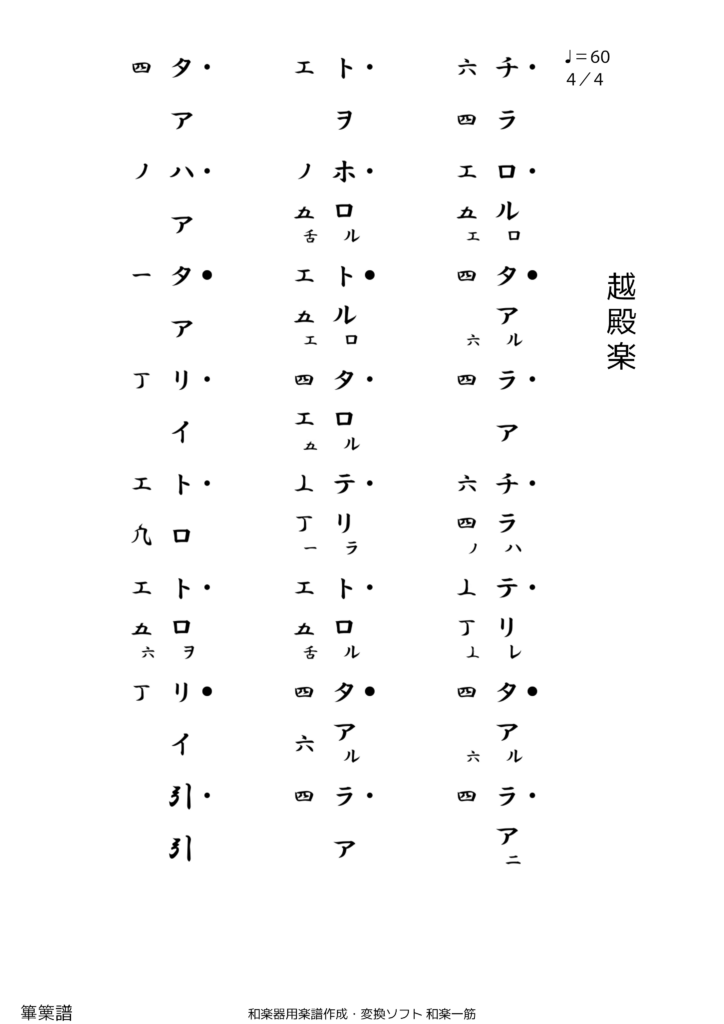 越殿楽
♩=60
4/4
チラロルロタアルラアチラハテリレタアルラアニ
六四工五工四六四六四ノ丄丁丄四六四
トヲホロルトルロタロルテリラトロルタアルラア
工ノ五舌工五工四工五丄丁一工五舌四六四
タアハアタアリイトロトロヲリイ引引
四ノ一丁工九工五六丁
篳篥譜
和楽器用楽譜作成・変換ソフト 和楽一筋